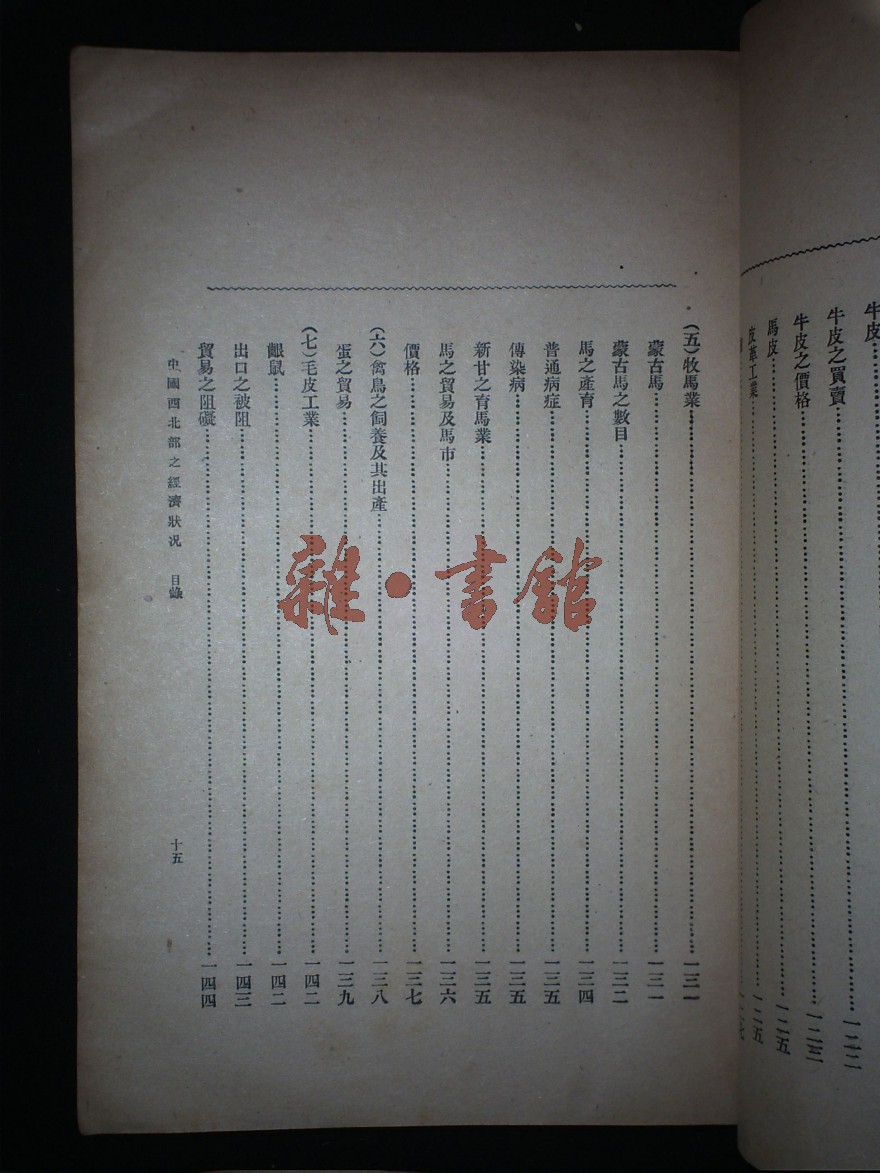 牛皮……一二二
牛皮之買賣……一二二
牛皮之價格……一二三
馬皮……一二五
皮革工業……一二五
(五)牧馬業……一三一
蒙古馬……一三一
蒙古馬之數目……一三二
馬之產育……一三四
普通病症……一三五
傳染病……一三五
新甘之育馬業……一三五
馬之貿易及馬市……一三六
價格……一三七
(六)禽鳥之飼養及其出產……一三八
蛋之貿易……一三九
(七)毛皮工業……一四二
齦鼠……一四二
出口之被阻……一四三
貿易之阻礙……一四四
中國西北部之經濟狀況 目錄 十五
雜·書館